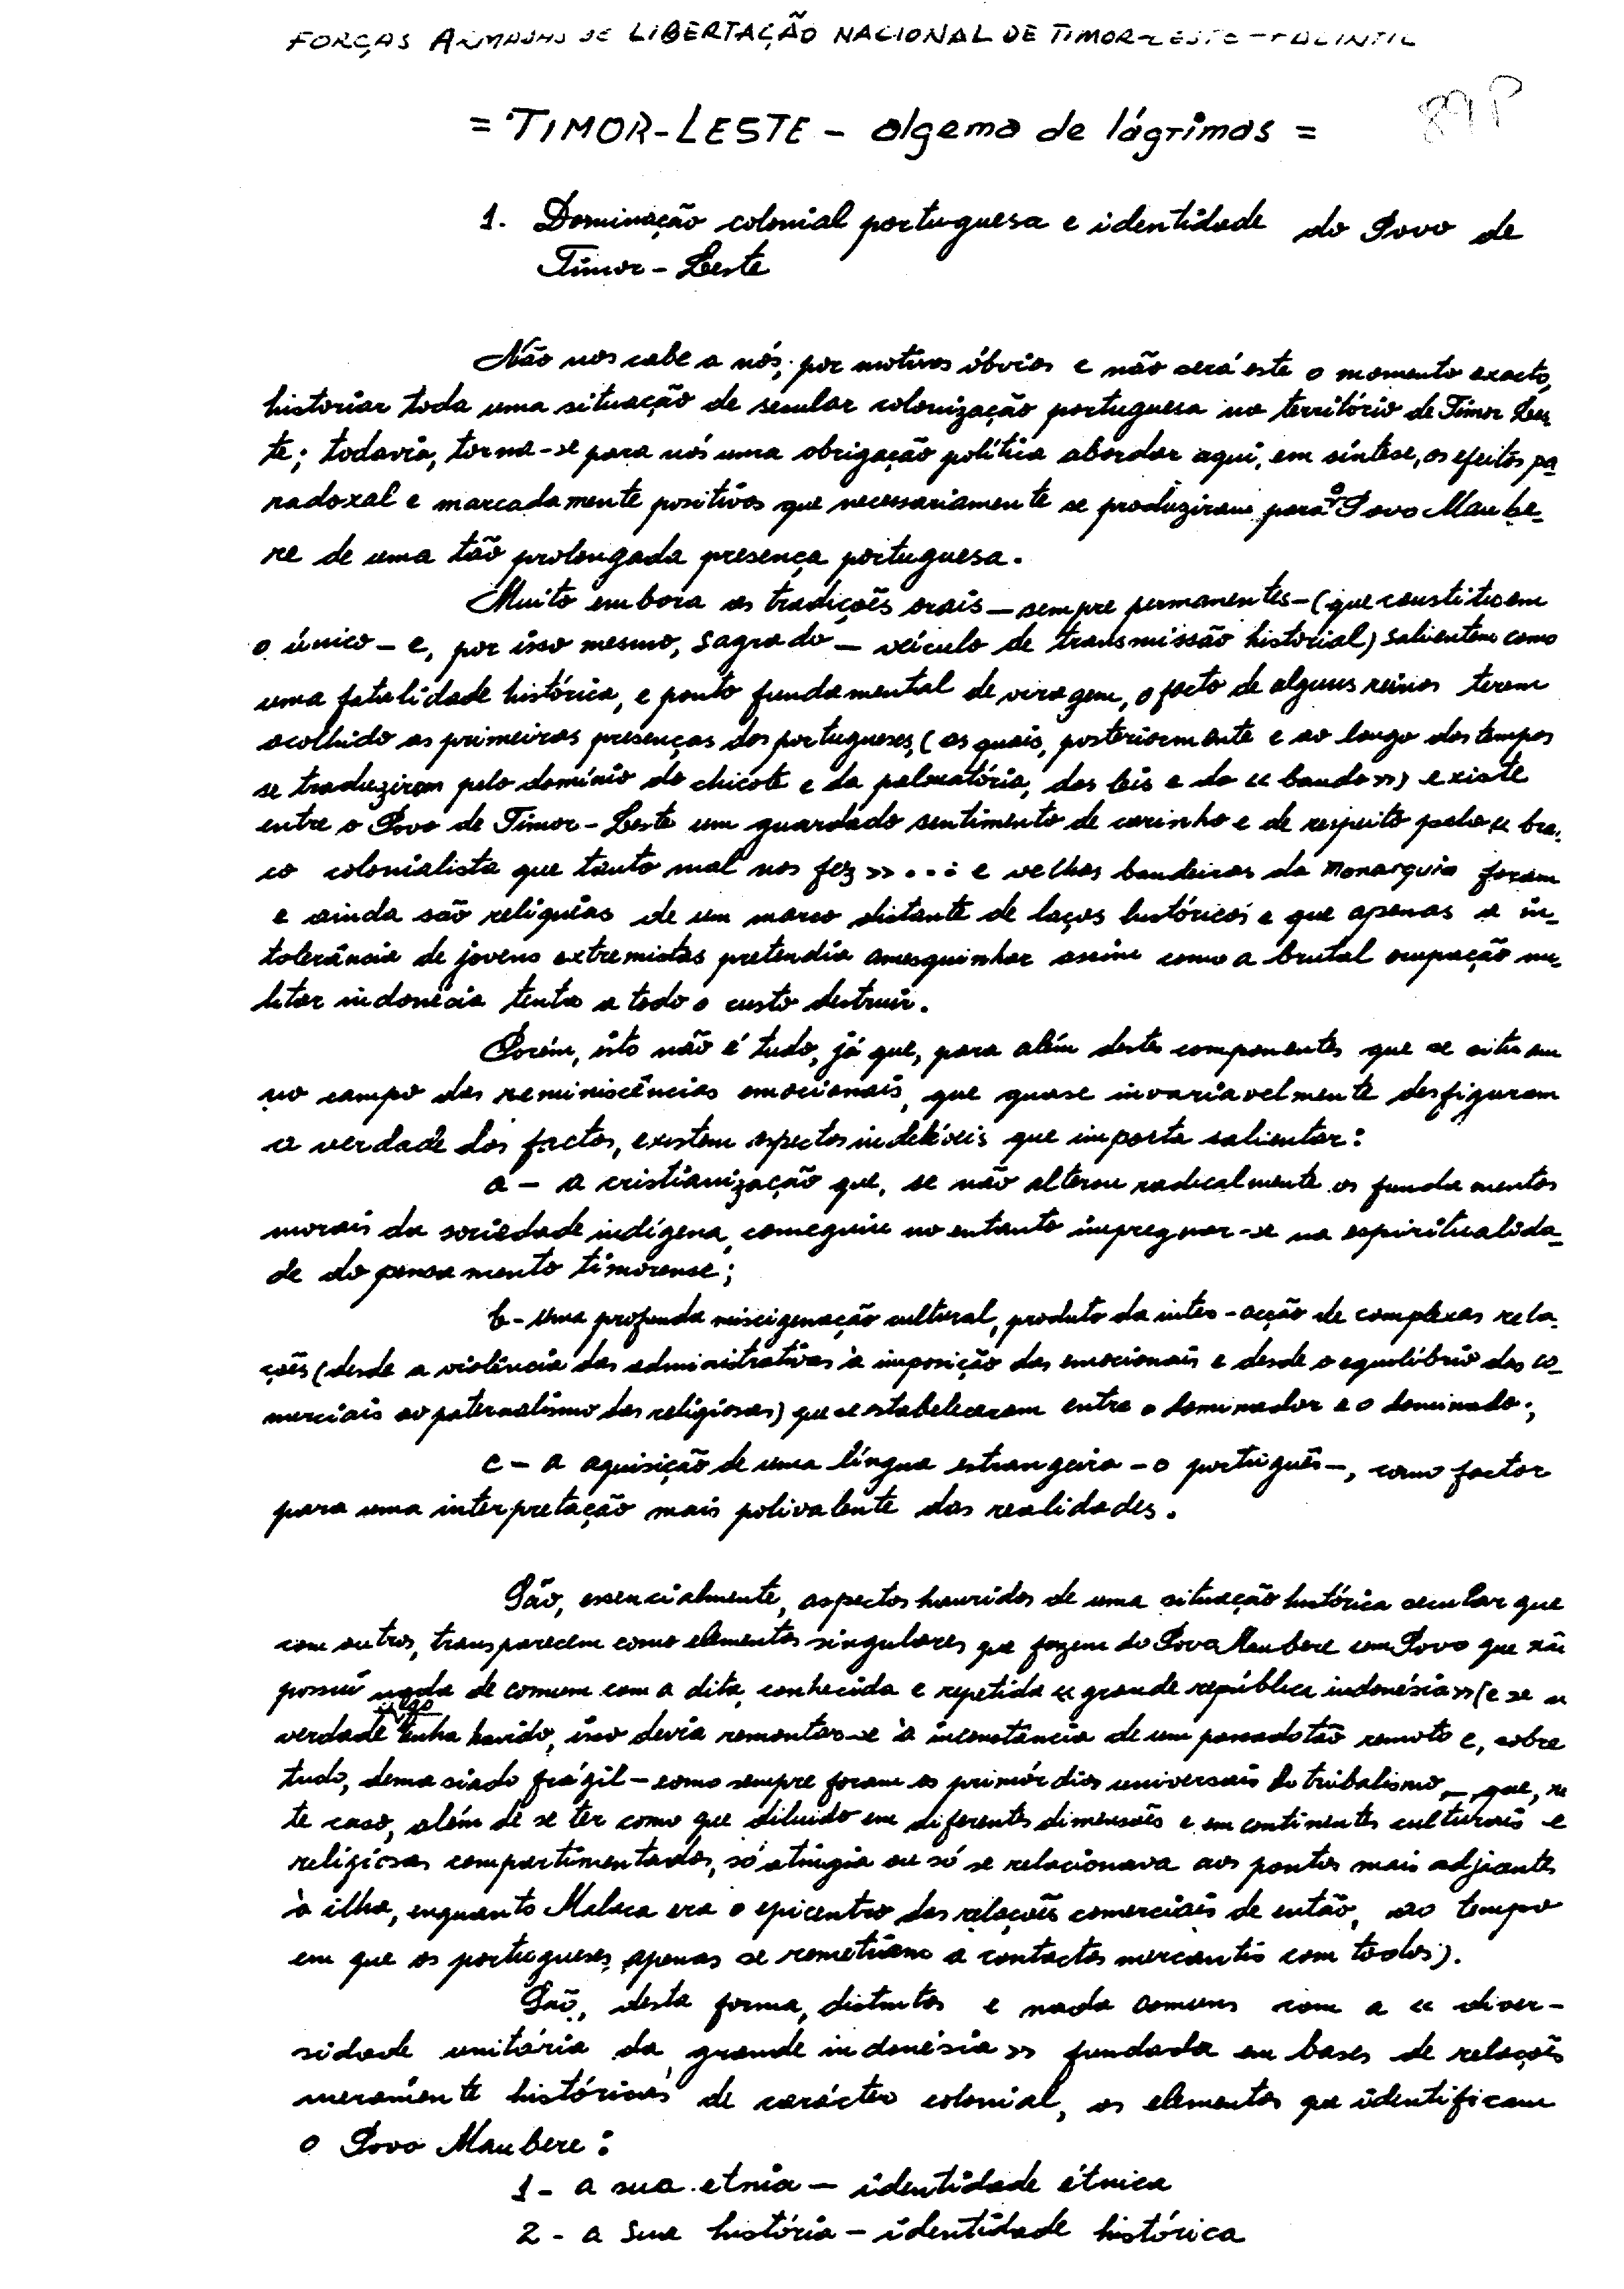 FORÇAS ARMADAS DE LIBERTAÇÃO NACIONAL DE TIMOR-LESTE - FALINTIL
= TIMOR-LESTE - algema de lágrimas =
1. Dominação colonial portuguesa e identidade do Povo de
Timor-Leste
Não nos cabe a nós, por motivos óbvios e não será este o momento exacto,
historiar toda uma situação de secular colonização portuguesa no território de Timor Les
te; todavia, torna-se para nós uma obrigação política abordar aqui, em síntese, os efeitos pa
radoxal e marcadamente positivos que necessariamente se produziram para o Povo Maube-
re de uma tão prolongada presença portuguesa.
Muito embora as tradições orais — sempre permanentes — (que constituem
o único — e, por isso mesmo, sagrado — veículo de transmissão historial) salientem como
uma fatalidade histórica, e ponto fundamental de viragem, o facto de alguns reinos terem
acolhido as primeiras presenças dos portugueses, (as quais, posteriormente e ao longo dos tempos
se traduziram pelo domínio do chicote e da palmatória, das leis e do «bando») existe
entre o Povo de Timor-Leste um guardado sentimento de carinho e de respeito pelo «bran
co colonialista que tanto mal nos fez»... e velhas bandeiras da Monarquia foram
e ainda são relíquias de um marco distante de laços históricos e que apenas a in-
tolerância de jovens extremistas pretendia amesquinhar assim como a brutal ocupação mi-
litar indonésia tenta a todo o custo destruir.
Porém, isto não é tudo, já que, para além destes componentes que se situam
no campo das reminiscências emocionais, que quase invariavelmente desfiguram
a verdade dos factos, existem aspectos indeléveis que importa salientar:
a - a cristianização que, se não alterou radicalmente os fundamentos
morais da sociedade indígena, conseguiu no entanto impregnar-se na espiritualida-
de do pensamento timorense;
b - uma profunda miscigenação cultural, produto da inter-acção de complexas rela-
ções (desde a violência das administrativas à imposição das emocionais e desde o equilíbrio das co-
merciais ao paternalismo das religiosas) que se estabeleceram entre o dominador e o dominado;
c - a aquisição de uma língua estrangeira - o português -, como factor
para uma interpretação mais polivalente das realidades.
São, essencialmente, aspectos hauridos de uma situação histórica secular que
com outros, transparecem como elementos singulares que fazem do Povo Maubere um Povo que nã
possui nada de comum com a dita, conhecida e repetida «grande república indonésia» (e se n
verdade algo tenha havido, isso devia remontar-se à inconstância de um passado tão remoto e, sobre
tudo, demasiado frágil - como sempre foram os primórdios universais do tribalismo -, que, nes
te caso, além de se ter como que diluído em diferentes dimensões e em continentes culturais e
religiosas compartimentados, só atingia ou só se relacionava aos pontos mais adjacentes
à ilha, enquanto Malaca era o epicentro das relações comerciais de então, ao tempo
em que os portugueses apenas se remetiam a contactos mercantis com todos).
São, desta forma, distintos e nada comuns com a «diver-
sidade unitária da grande indonésia» fundada em bases de relações
meramente históricas de carácter colonial, os elementos que identificam
o Povo Maubere:
1 - a sua etnia - identidade étnica
2 - a sua história - identidade histórica